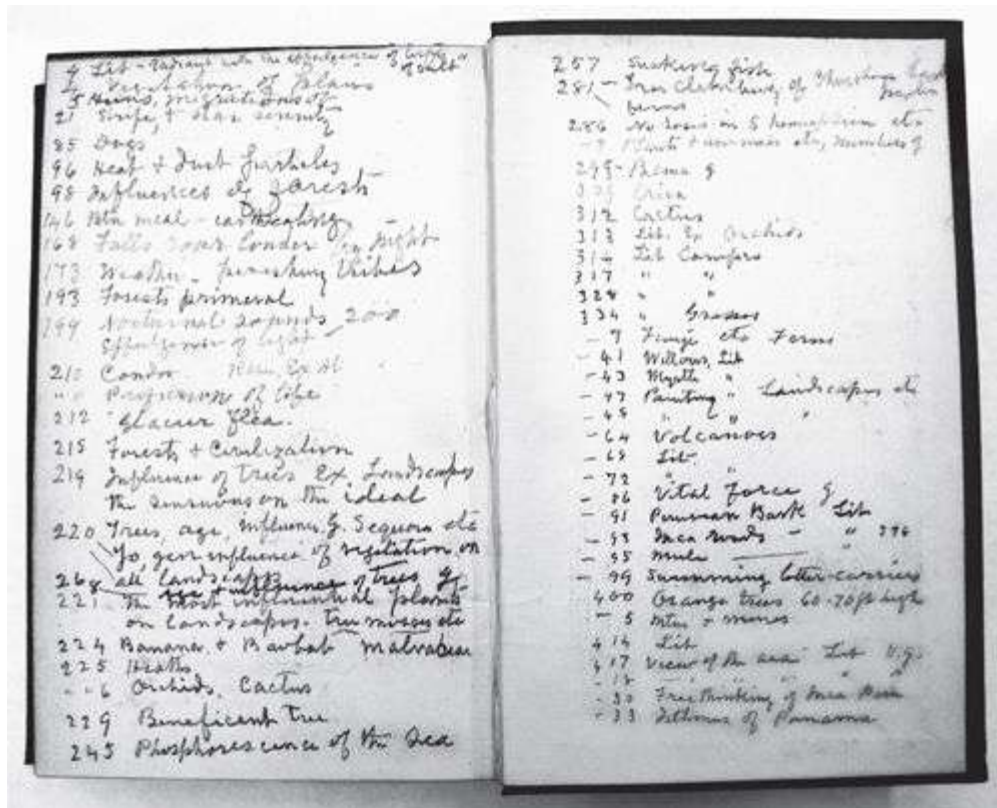 4 Lit - Radiant with the effulgence of
4 Vegetation of plains
5 migrations of
21 Strife, + star serenity
85 Dogs
96 Heat + dust particles
98 Influences of forests
146 meal -
168 Falls roar louder by night
173 Weather - perishing tribes
193 Forests primeval
199 Nocturnal sounds 200
Effulgence of light
210 Condor
Profusion of life
212 Glacier flea.
215 Forests + Civilization
219 Influence of trees Ex. Landscapes
the sensuous on the ideal
220 Trees, age, influence, G. Sequoia etc
To, gen influence of vegetation on
268 all landscapes
age + influence of trees
221 - the most influential plants
on landscapes. tree masses etc
224 Banana + Baobab Malvaceae
225 Heaths
- - 6 Orchids, Cactus
229 Beneficent Tree
245 Phosphorescence of the Sea
257 fish
281 - of
286 No roses in S hemisphere etc
- 7 Plants + etc, numbers of
295 -
Erica
312 Cactus
313 Lit. Ex Orchids
314 Lit Conifers
317 " "
328 " "
334 " Grasses
- 7 Fungi etc Ferns
- 41 Willows, Lit
- 43 Myrtle "
- 47 Painting " Landscapes etc
- 48 " " "
- 64 Volcanoes
- 68 Lit
- 72 "
- 86 Vital Force
- 91 Peruvian Bark Lit
- 93 Inca roads - " 396
- 95 Mule
- 99 Swimming letter-carriers
400 Orange trees 60-70 ft high
- 5 Mtns + mines
414 Lit
417 View of the sea Lit V.g.
- 18 " "
- 30 Freethinking of Inca
- 33 Isthmus of Panama